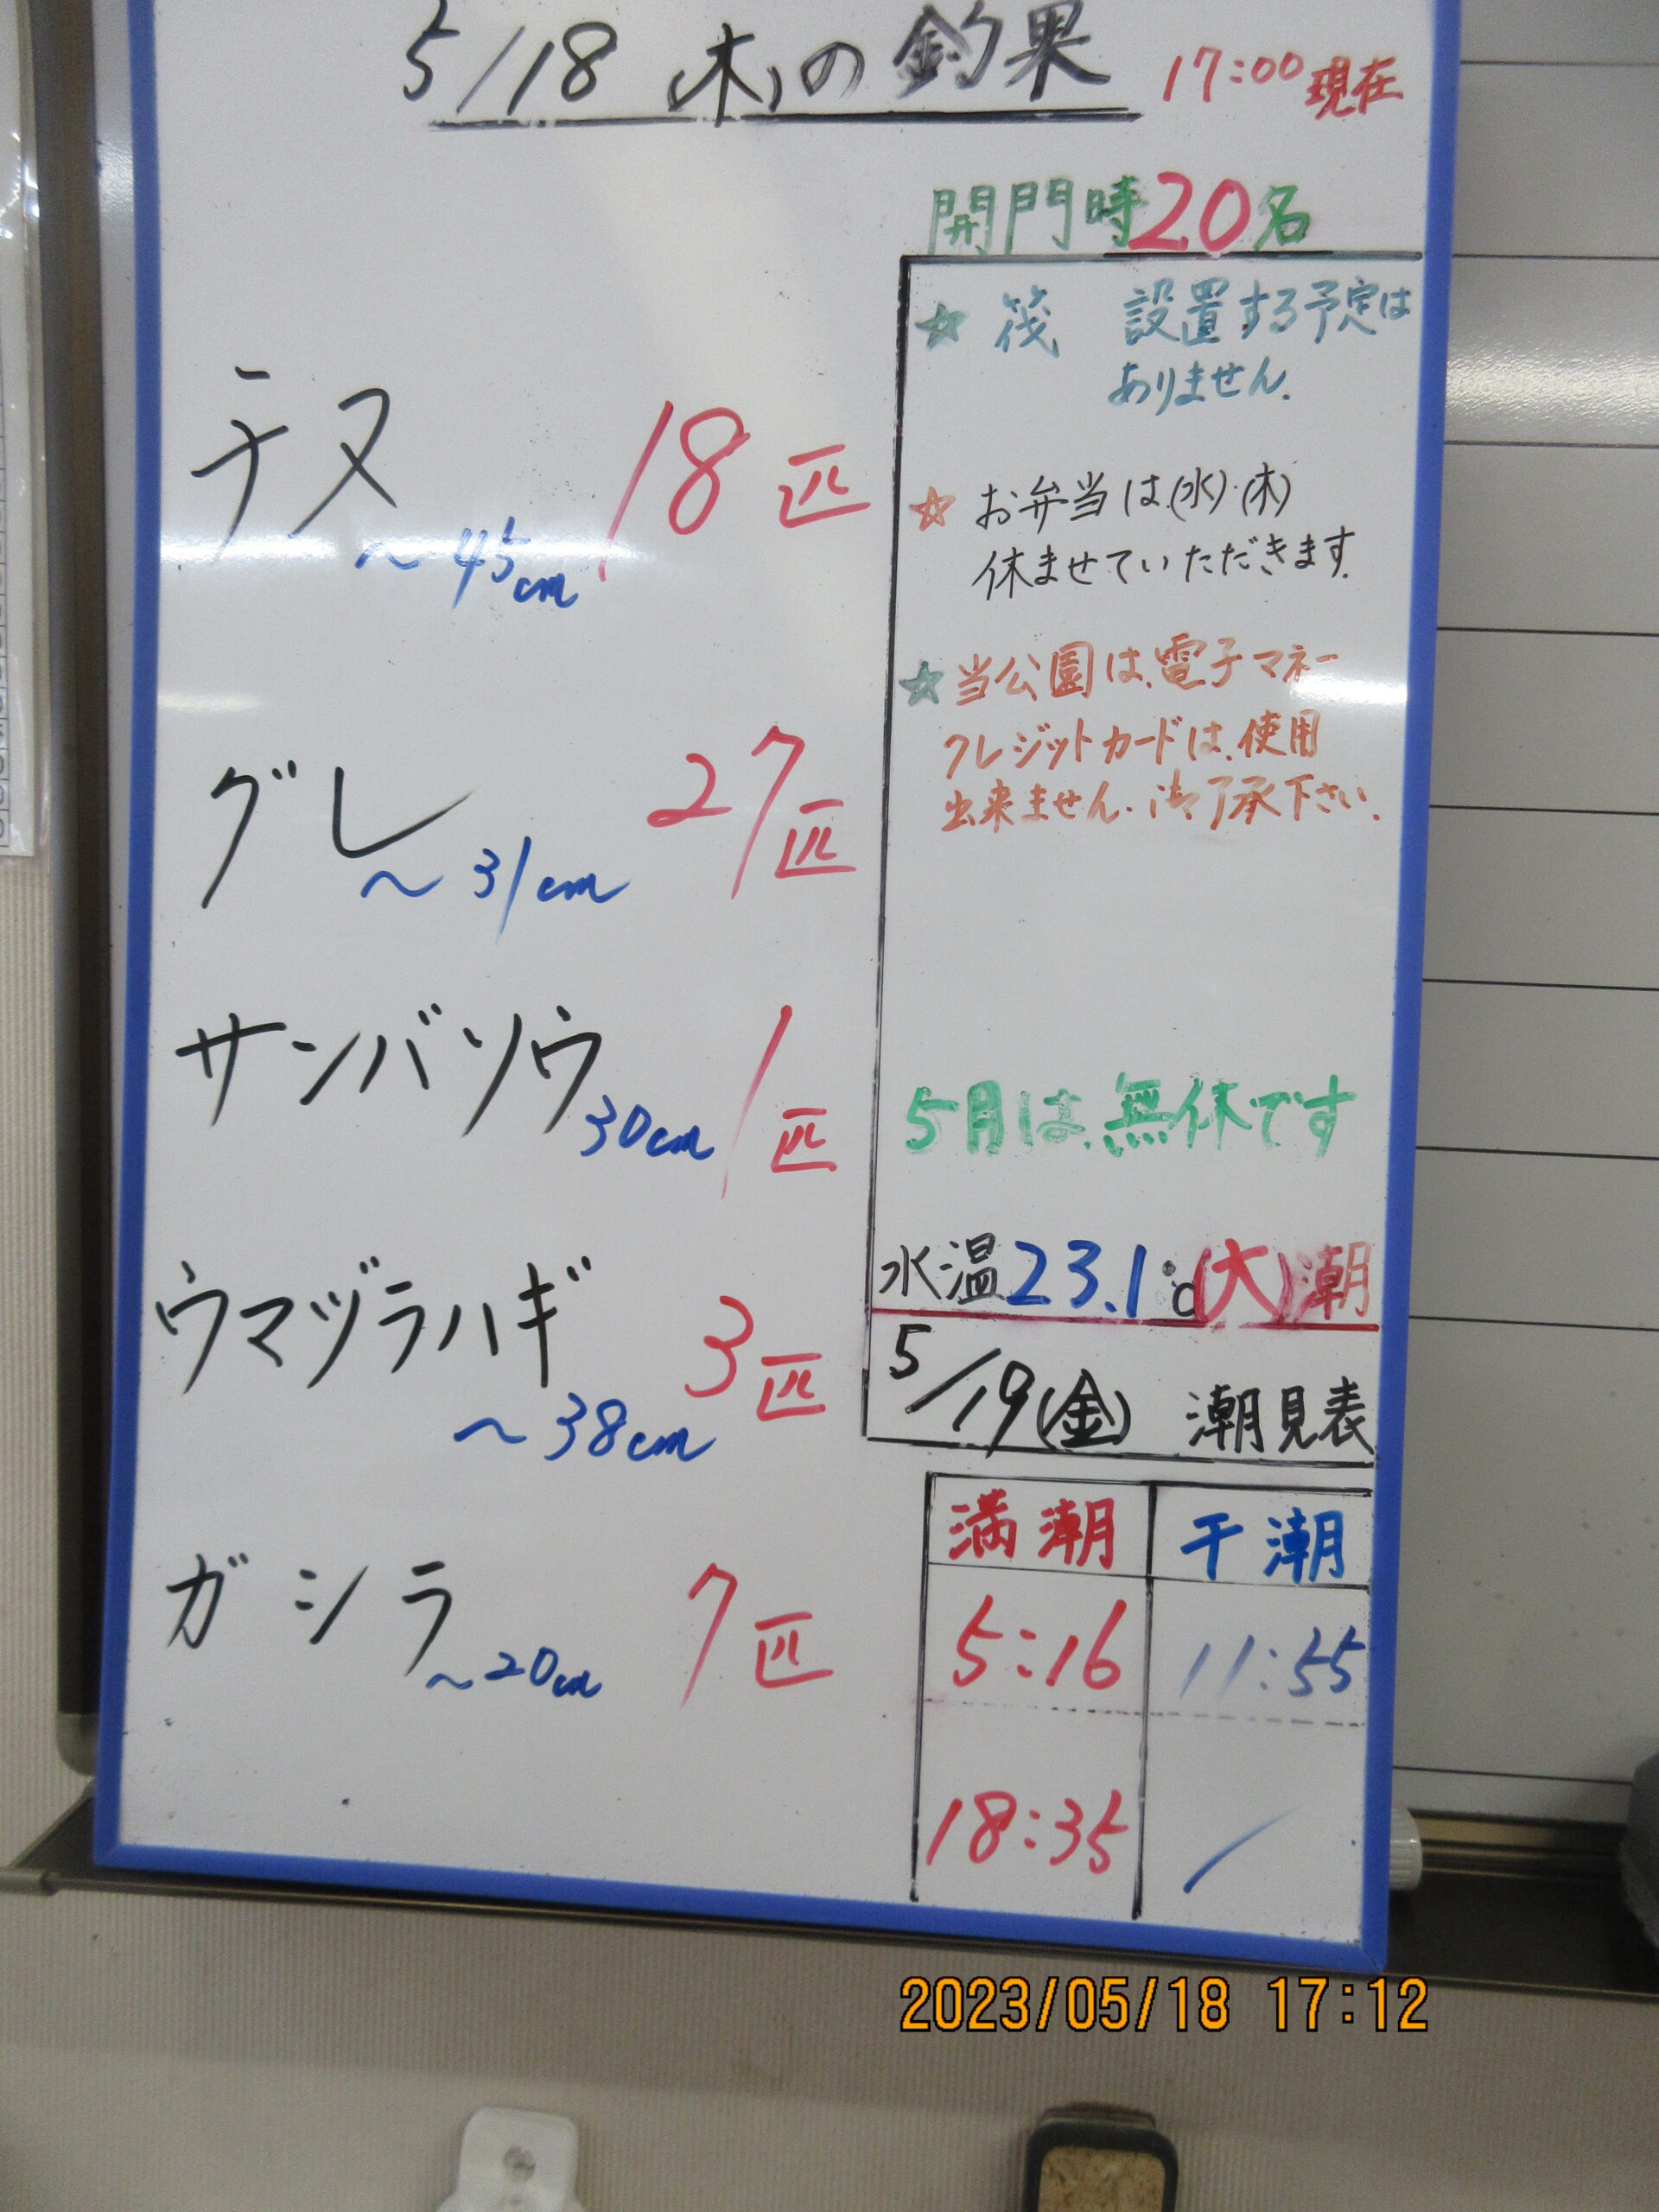 5/18 (木)の釣果 17:00現在
開門時20名
☆ 筏 設置する予定は
ありません.
☆ お弁当は(水)・(木)
休ませていただきます.
☆当公園は、電子マネー
クレジットカードは、使用
出来ません. 御了承下さい.
5月は、無休です
水温23.1℃(大)潮
5/19(金) 潮見表
満潮 干潮
5:16 11:55
18:35 /
チヌ ~45cm 18匹
グレ ~31cm 27匹
サンバソウ 30cm 1匹
ウマヅラハギ ~38cm 3匹
ガシラ ~20cm 7匹
2023/05/18 17:12